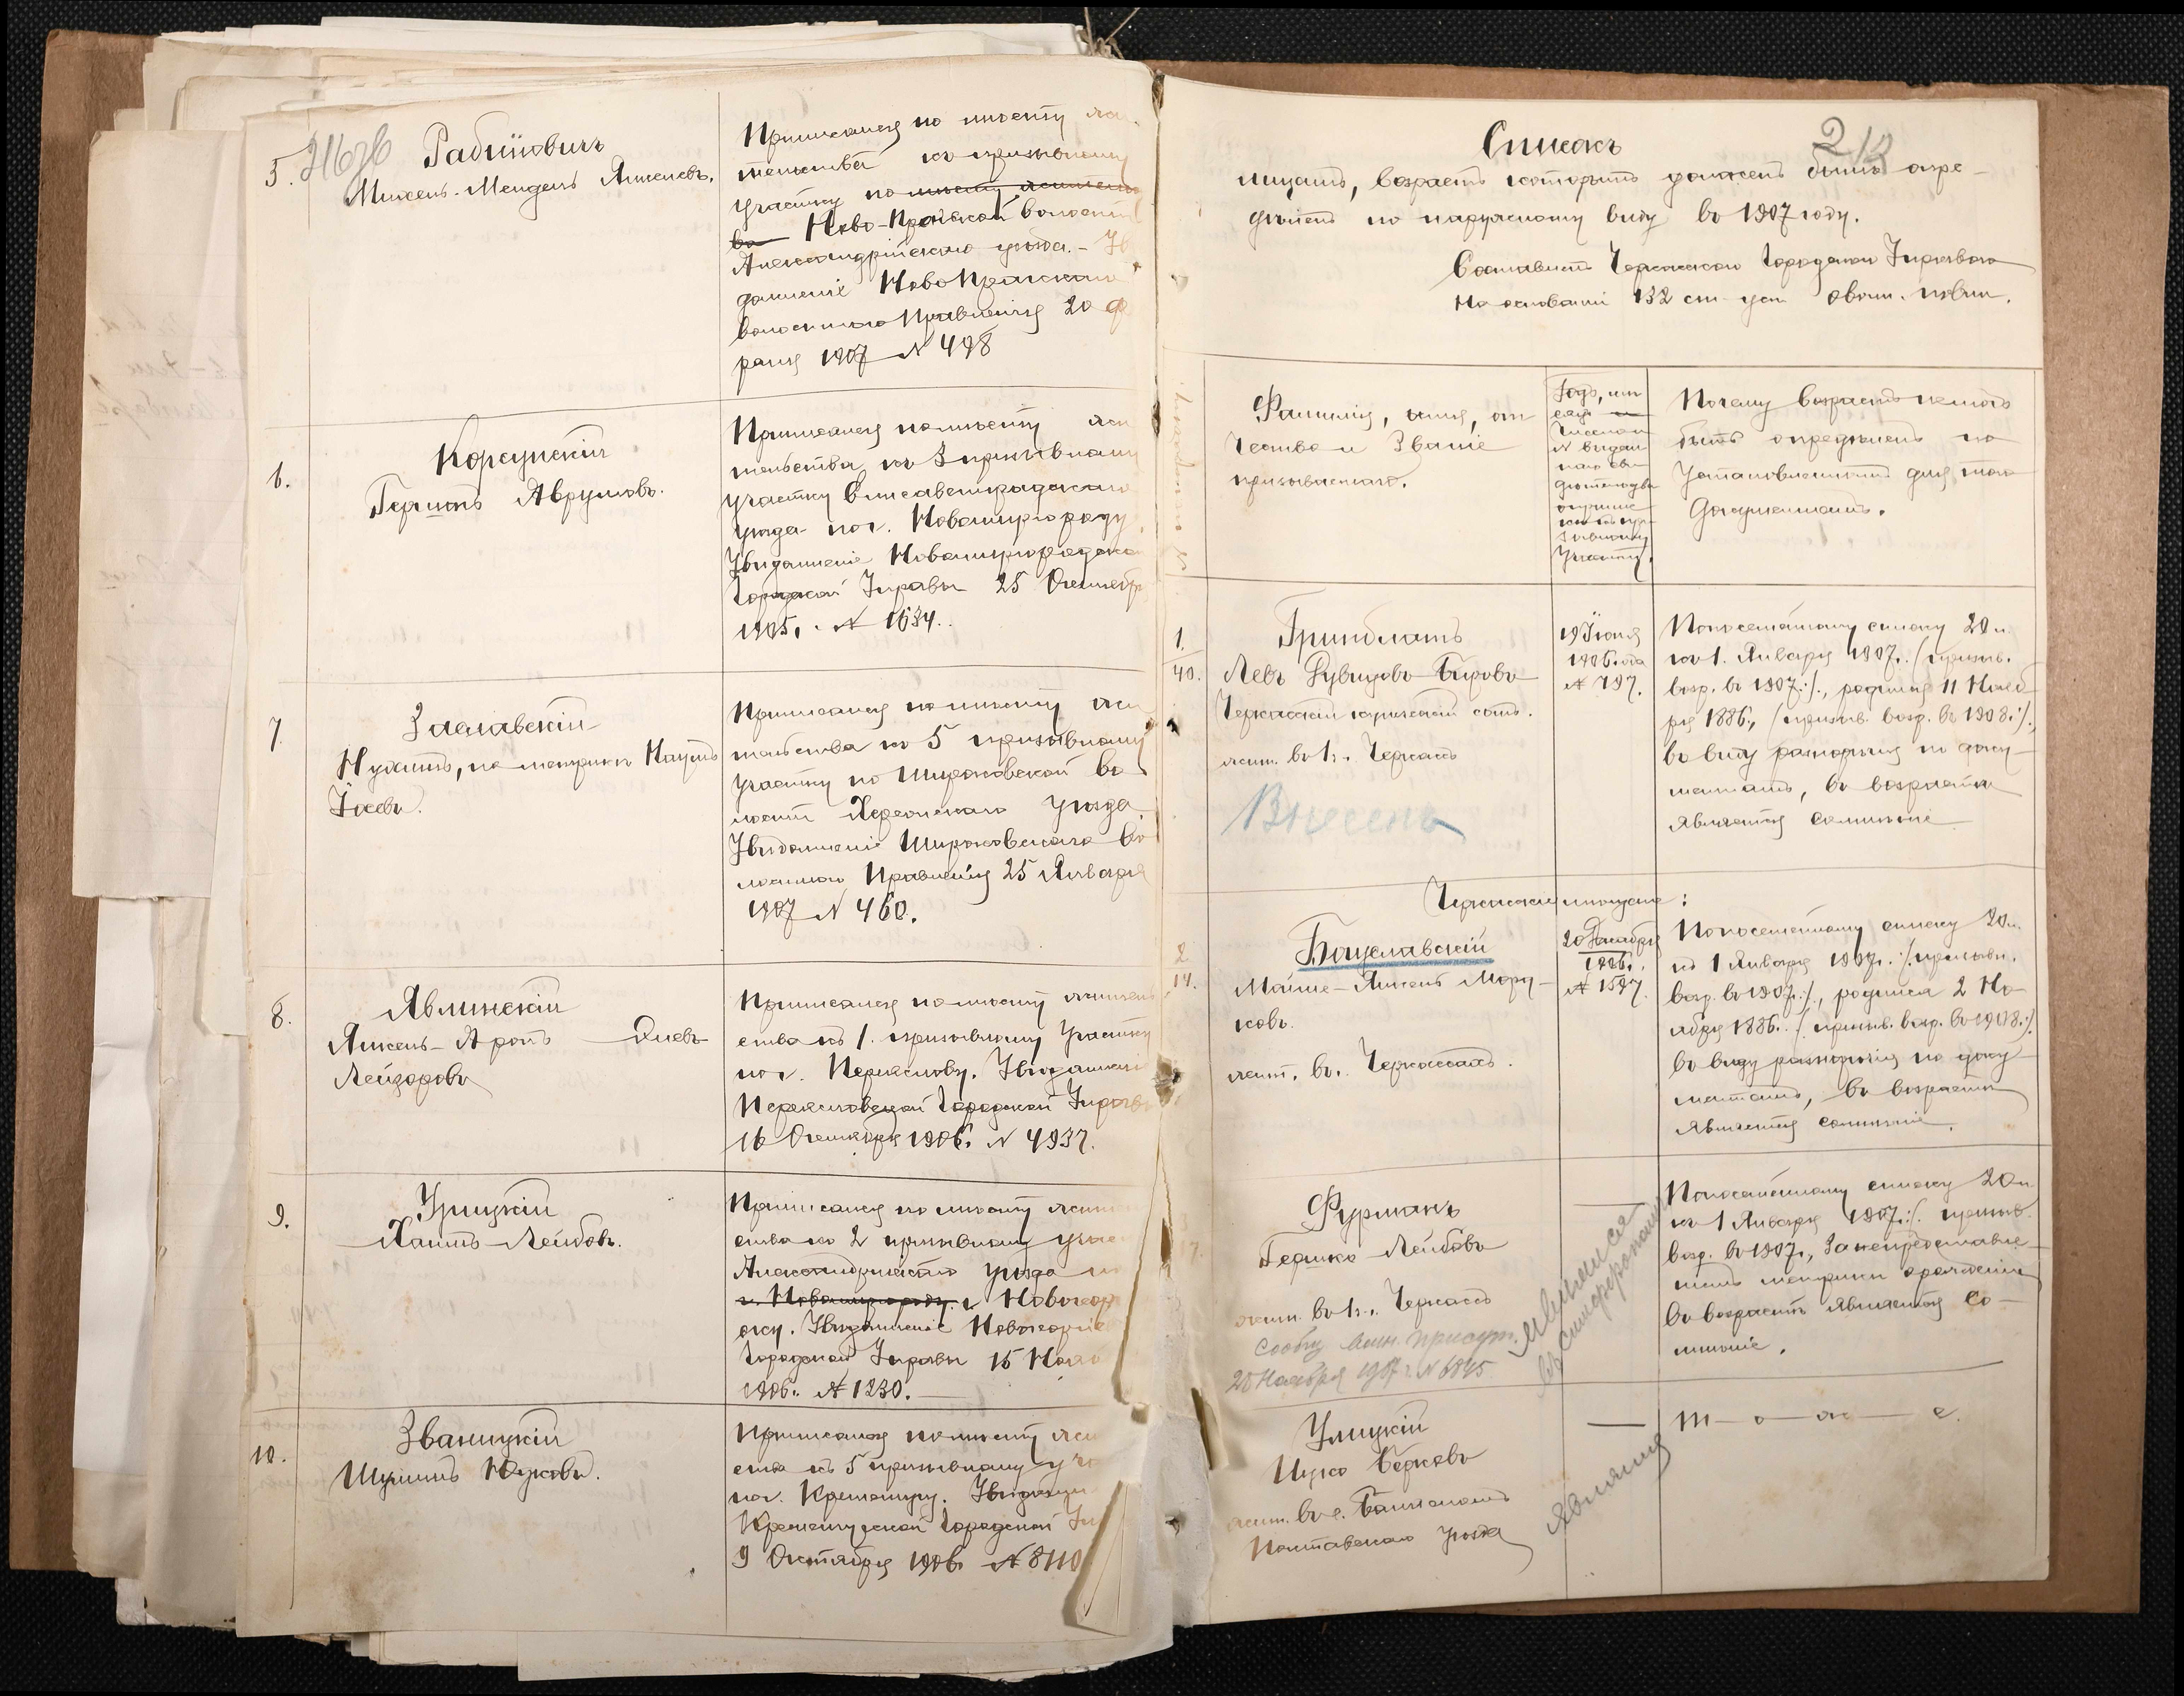 5.
Рабиновичъ
Михель-Мендель Янкелевъ.
Приписанъ по мѣсту жи-
тельства къ призывному
участку по мѣсту жительст
ва Ново-Пражской волости
Александрійскаго уѣзда. - Ув
домленіе Ново Пражскаго
волостного Правленія 20 Ф
раля 1907 N 498
6.
Корсунскій
Гершонъ Аврумовъ.
Приписанъ по мѣсту жи
тельства къ 3 призывному
участку Елисаветградскаго
уѣзда по г. Новомиргороду
Увѣдомленіе Новомиргородской
Городской Управы 25 Октября
1905 г. N 1634.
7.
Заславскій
Нухимъ, по метрикѣ Наумъ
Іосевъ.
Приписанъ по мѣсту жи
тельства къ 5 призывному
участку по Широковской во
лости Херсонскаго уѣзда
Увѣдомленіе Широковскаго во
лостного Правленія 25 Января
1907 N 460.
8.
Явлинскій
Янкель-Аронъ Элевъ
Лейзоровъ
Приписанъ по мѣсту житель
ства къ 1. призывному участку
по г. Переяславу. Увѣдомленіе
Переяславской Городской Управы
16 Октября 1906 г. N 4937.
9.
Урицкій
Хаимъ Лейбовъ.
Приписанъ по мѣсту жит
ства къ 2 призывному учас
Александрійскаго уѣзда по
г. Новомиргороду. г. Новогеор
іску. Увѣдомленіе Новогеоргіев
Городской Управы 15 Нояб
1906 г. N 1230.
10.
Званицкій
Шулимъ Юдковъ.
Приписанъ по мѣсту жи
ства къ 5 призывному уча
по г. Кременчугу. Увѣдомлен
Кременчугской Городской Уп
9 Октября 1906 N 8110
Списокъ
лицамъ, возрастъ которыхъ долженъ быть опре-
дѣленъ по наружному виду въ 1907 году.
Составленъ Черкасской Городской Управою
на основаніи 132 ст. уст. о воин. повин.
Фамилія, имя, от
чество и Званіе
призываемаго.
Годъ, мѣ
сяцъ и
число и
N выдан
наго сви
дѣтельства
о припис
кѣ къ при
зывному
участку.
Почему возрастъ не можетъ
быть опредѣленъ по
установленнымъ для того
документамъ.
1.
40.
Гринблатъ
Левъ Рувиновъ-Беровъ
Черкасскій купеческій сынъ.
жит. въ г. Черкасъ
Внесенъ
19 Іюня
1906 года
N 797.
По посемейному списку 20 л.
къ 1. Января 1907 г. (призыв.
возр. въ 1907:)., родился 11 Нояб
ря 1886 г. (призыв. возр. въ 1908:).,
въ виду разнорѣчія по доку-
ментамъ, въ возрастѣ
является сомнѣніе
Черкасскіе мѣщане:
2
14.
Богуславскій
Мойше-Янкель Морд-
ковъ.
жит. въ г. Черкассахъ.
20 Декабря
1906 г.
N 1597.
По посемейному списку 20 л.
къ 1 Января 1907 г. (: призывн.
возр. въ 1907:)., родился 2 Но-
ября 1886 г. (призыв. возр. въ 1908:).
въ виду разнорѣчія по доку
ментамъ, въ возрастѣ
является сомнѣніе.
Фурманъ
Гершко Лейбовъ
жит. въ г. Черкасъ
20 Ноября 1907 г. N 6845
Являлся
въ Симферополѣ
По посемейному списку 20 л
къ 1 Января 1907 г. (: призыв.
возр. въ 1907 г., за непредставле-
ніемъ метрики о рожденіи
въ возрастѣ является со-
мнѣніе.
Улицкій
Ицко Берковъ
Полтавскаго уѣзда
Являлся
— т — о — ж — е.